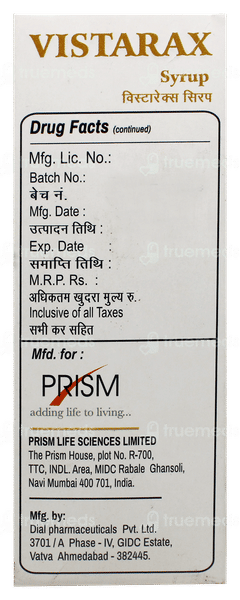 VISTARAX
Syrup
विस्टारेक्स सिरप
Drug Facts (continued)
Mfg. Lic. No.:
Batch No.:
बेच नं.
Mfg. Date :
उत्पादन तिथि :
Exp. Date :
समाप्ति तिथि :
M.R.P. Rs. :
अधिकतम खुदरा मुल्य रु.
Inclusive of all Taxes
सभी कर सहित
Mfd. for :
PRISM
adding life to living...
PRISM LIFE SCIENCES LIMITED
The Prism House, plot No. R-700,
TTC, INDL. Area, MIDC Rabale Ghansoli,
Navi Mumbai 400 701, India.
Mfg. by:
Dial pharmaceuticals Pvt. Ltd.
3701 / A Phase - IV, GIDC Estate,
Vatva Ahmedabad - 382445.
truemeds